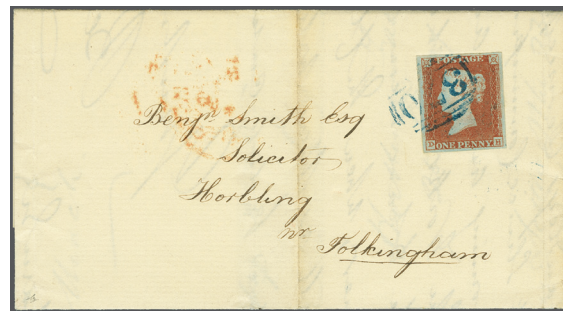 POSTAGE
ONE PENNY
Benjn Smith Esq
Solicitor
Horbling
nr
Folkingham